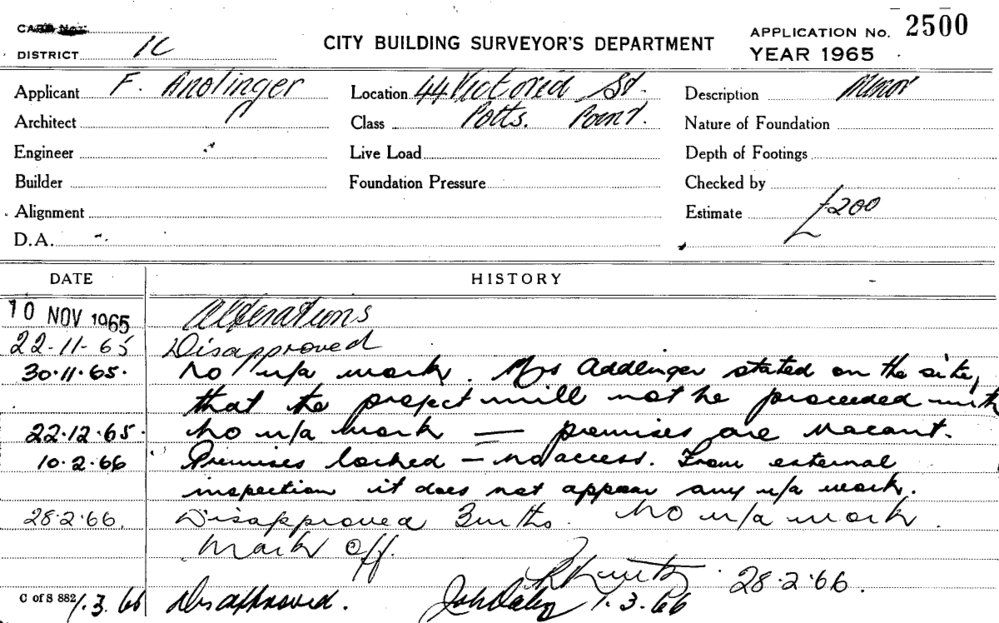 CARD No.
DISTRICT 1C
CITY BUILDING SURVEYOR'S DEPARTMENT
APPLICATION No. 2500
YEAR 1965
Applicant F. Andlinger
Location 44 Victoria St.
Description Minor
Architect
Class Potts. Point.
Nature of Foundation
Engineer
Live Load
Depth of Footings
Builder
Foundation Pressure
Checked by
Alignment
Estimate £200
D.A.
DATE
HISTORY
10 NOV 1965 Alterations
22-11-65 Disapproved
30.11.65. No u/a work. Mrs Addlinger stated on the site,
that the project will not be proceeded with
22.12.65. No u/a work — premises are vacant.
10.2.66 Premises locked — no access. From external
inspection it does not appear any u/a work.
28.2.66. Disapproved 3 mths. No u/a work.
Mark Off.
28.2.66.
C of S 882 1.3.66 Disapproved. 1.3.66